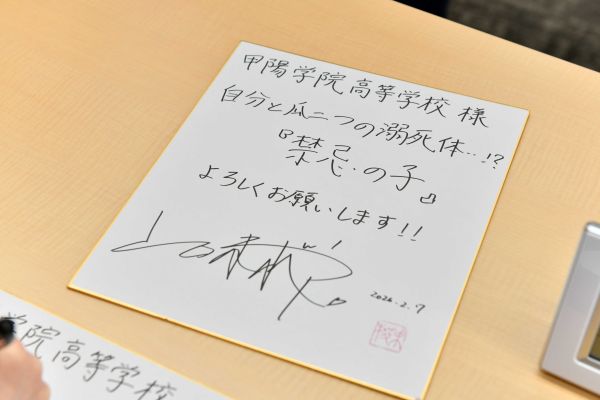 甲陽学院高等学校 様
自分と瓜二つの溺死体…!?
『禁忌の子』
よろしくお願いします!!
2026.2.9
学院高等学校